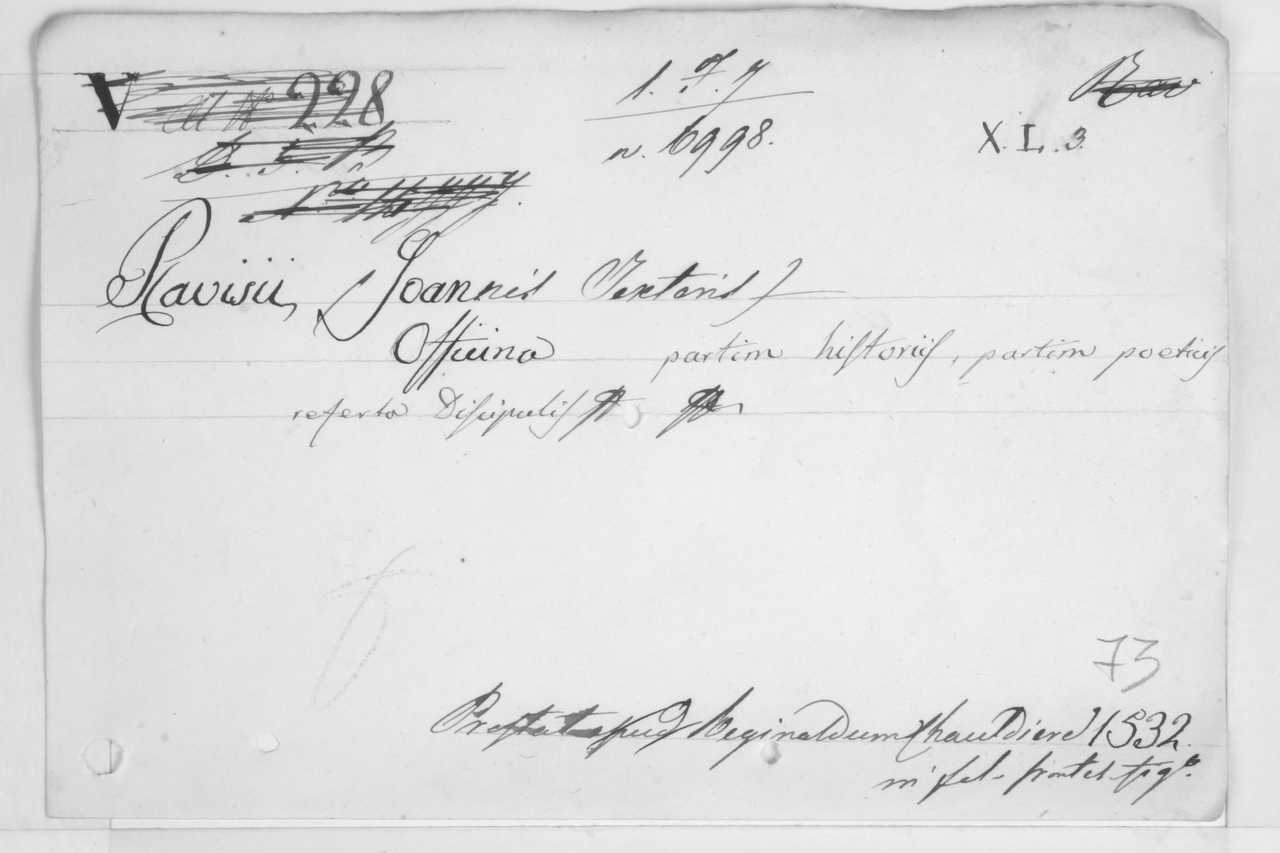 V 228
1. 7. 7
n. 6998.
Rav
X. L. 3.
Ravisii, (Joannis Textoris)
Officina partim historiis, partim poeticis
referta Disciplis
73
Prostat apud Reginaldum Chaudiere 1532.
in fol. frontel. fig.